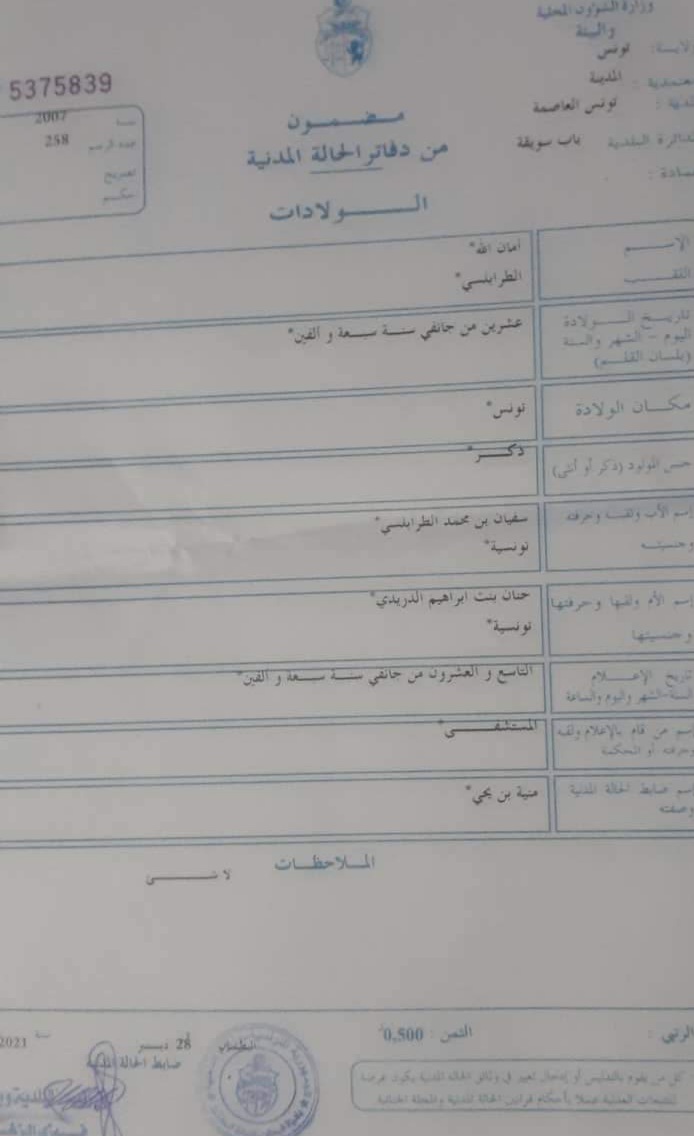 وزارة الشؤون المحلية
و البيئة
ولاية: تونس
معتمدية : المدينة
بلدية : تونس العاصمة
الدائرة البلدية باب سويقة
عمادة :
5375839
سنة 2007
عدد الرسم 258
تصريح
حكم
مضمون
من دفاتر الحالة المدنية
الولادات
الاسم أمان الله*
اللقب الطرابلسي*
تاريخ الولادة عشرين من جانفي سنة سبعة و ألفين*
اليوم - الشهر والسنة
(بلسان القلم)
مكان الولادة تونس*
جنس المولود (ذكر أو أنثى) ذكر*
إسم الأب ولقبه وحرفته سفيان بن محمد الطرابلسي*
وجنسيته تونسية*
إسم الأم ولقبها وحرفتها حنان بنت ابراهيم الدريدي*
وجنسيتها تونسية*
تاريخ الإعلام التاسع و العشرون من جانفي سنة سبعة و ألفين*
السنة-الشهر واليوم والساعة
إسم من قام بالإعلام ولقبه المستشفى*
وحرفته أو المحكمة
إسم ضابط الحالة المدنية منية بن يحي*
وصفته
الملاحظات
لا شى
الثمن : 0,500
28 ديسمبر سنة 2021
ضابط الحالة المدنية
كل من يقوم بالتدليس أو إدخال تغيير في وثائق الحالة المدنية يكون عرضة
للتتبعات العدلية عملا بأحكام قوانين الحالة المدنية والمجلة الجنائية